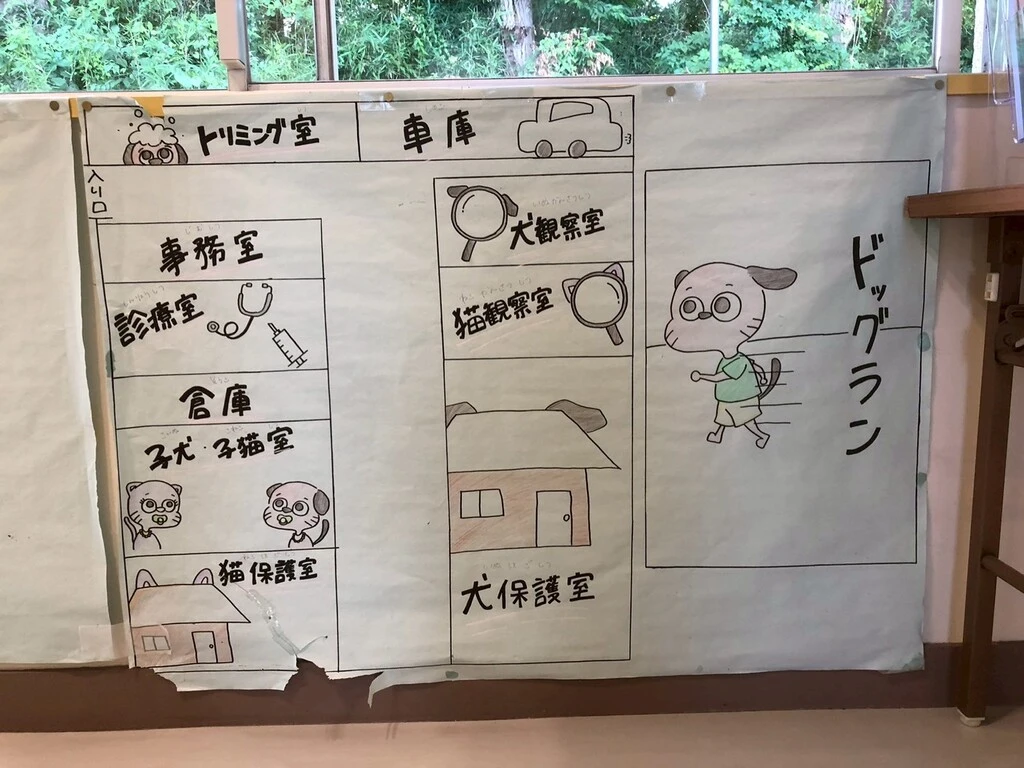 トリミング室
車庫
入り口
事務室
診療室
倉庫
子犬・子猫室
猫保護室
犬観察室
猫観察室
犬保護室
ドッグラン